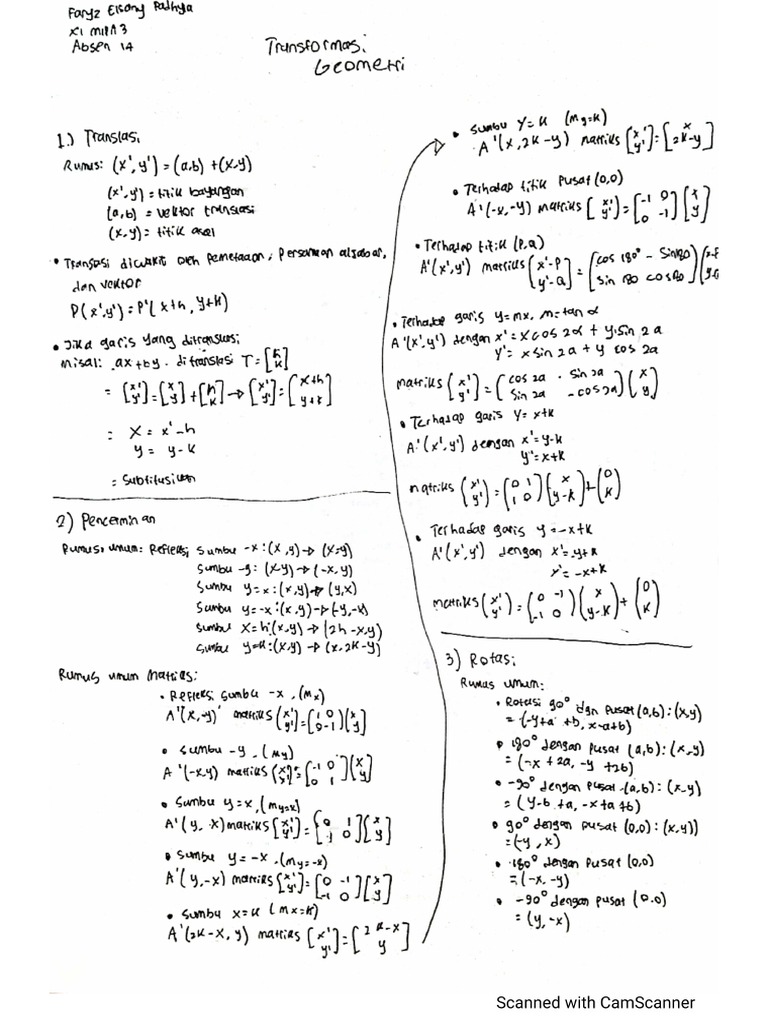 Faryz Elsony Fadhya
XI MIPA 3
Absen 14
Transformasi
Geometri
1.) Translasi
Rumus: (x', y') = (a,b) + (x,y)
(x',y') = titik bayangan
(a,b) = vektor translasi
(x,y) = titik asal
• Translasi diwakili oleh pemetaaan, persamaan aljabar,
dan vektor
P(x',y') = P'(x+h, y+k)
• Jika garis yang ditranslasi
misal: ax+by. ditranslasi T = [h k]
= [x' y'] = [x y] + [h k] → [x' y'] = [x+h y+k]
= x = x'-h
y = y-k
= Subtitusikan
2) Pencerminan
Rumus umum: Refleksi sumbu -x : (x,y) → (x-y)
sumbu -y : (x-y) → (-x,y)
sumbu y=x : (x,y) → (y,x)
sumbu y=-x : (x,y) → (-y,-x)
sumbu x=h : (x,y) → (2h-x,y)
sumbu y=k : (x,y) → (x,2k-y)
Rumus umum Matriks:
• Refleksi sumbu -x, (Mx)
A'(x,-y) matriks [x' y'] = [1 0 0 -1] (x y)
• sumbu -y, (My)
A'(-x,y) matriks [x' y'] = [-1 0 0 1] (x y)
• sumbu y=x, (My=x)
A'(y, x) matriks [x' y'] = [0 1 1 0] [x y]
• sumbu y=-x, (My=-x)
A'(y,-x) matriks [x' y'] = [0 -1 -1 0] [x y]
• sumbu x=k (Mx=k)
A'(2k-x, y) matriks [x' y'] = [2k-x y]
• sumbu y=k (My=k)
A'(x,2k-y) matriks [x' y'] = [x 2k-y]
• Terhadap titik pusat (0,0)
A'(-x,-y) matriks [x' y'] = [-1 0 0 -1] [x y]
• Terhadap titik (P,a)
A'(x',y') matriks (x'-P y'-a) = (cos 180° -sin 180 sin 180 cos 180)
• Terhadap garis y=mx, m=tan α
A'(x',y') dengan x' = x cos 2α + y sin 2a
y' = x sin 2a + y cos 2a
matriks (x' y') = (cos 2a · sin 2a sin 2a -cos 2a) (x y)
• Terhadap garis y=x+k
A'(x',y') dengan x'=y-k
y'=x+k
matriks (x' y') = (0 1 1 0) (x y-k) + (0 k)
• Terhadap garis y=-x+k
A'(x',y') dengan x'=-y+k
y'=-x+k
matriks (x' y') = (0 -1 -1 0) (x y-k) + (0 k)
3) Rotasi
Rumus umum:
• Rotasi 90° dgn pusat (a,b) : (x,y)
= (-y+a +b, x-a+b)
• 180° dengan pusat (a,b) : (x,y)
= (-x + 2a, -y +2b)
• -90° dengan pusat (a,b) : (x-y)
= (y-b +a, -x+a +b)
• 90° dengan pusat (0,0) : (x,y))
= (-y, x)
• 180° dengan pusat (0,0)
= (-x, -y)
• -90° dengan pusat (0.0)
= (y, -x)
Scanned with CamScanner